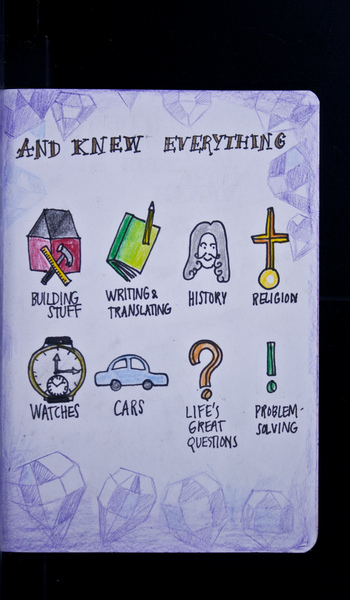 AND KNEW EVERYTHING
BUILDING
STUFF
WRITING &
TRANSLATING
HISTORY
RELIGION
WATCHES
CARS
LIFE'S
GREAT
QUESTIONS
PROBLEM-
SOLVING